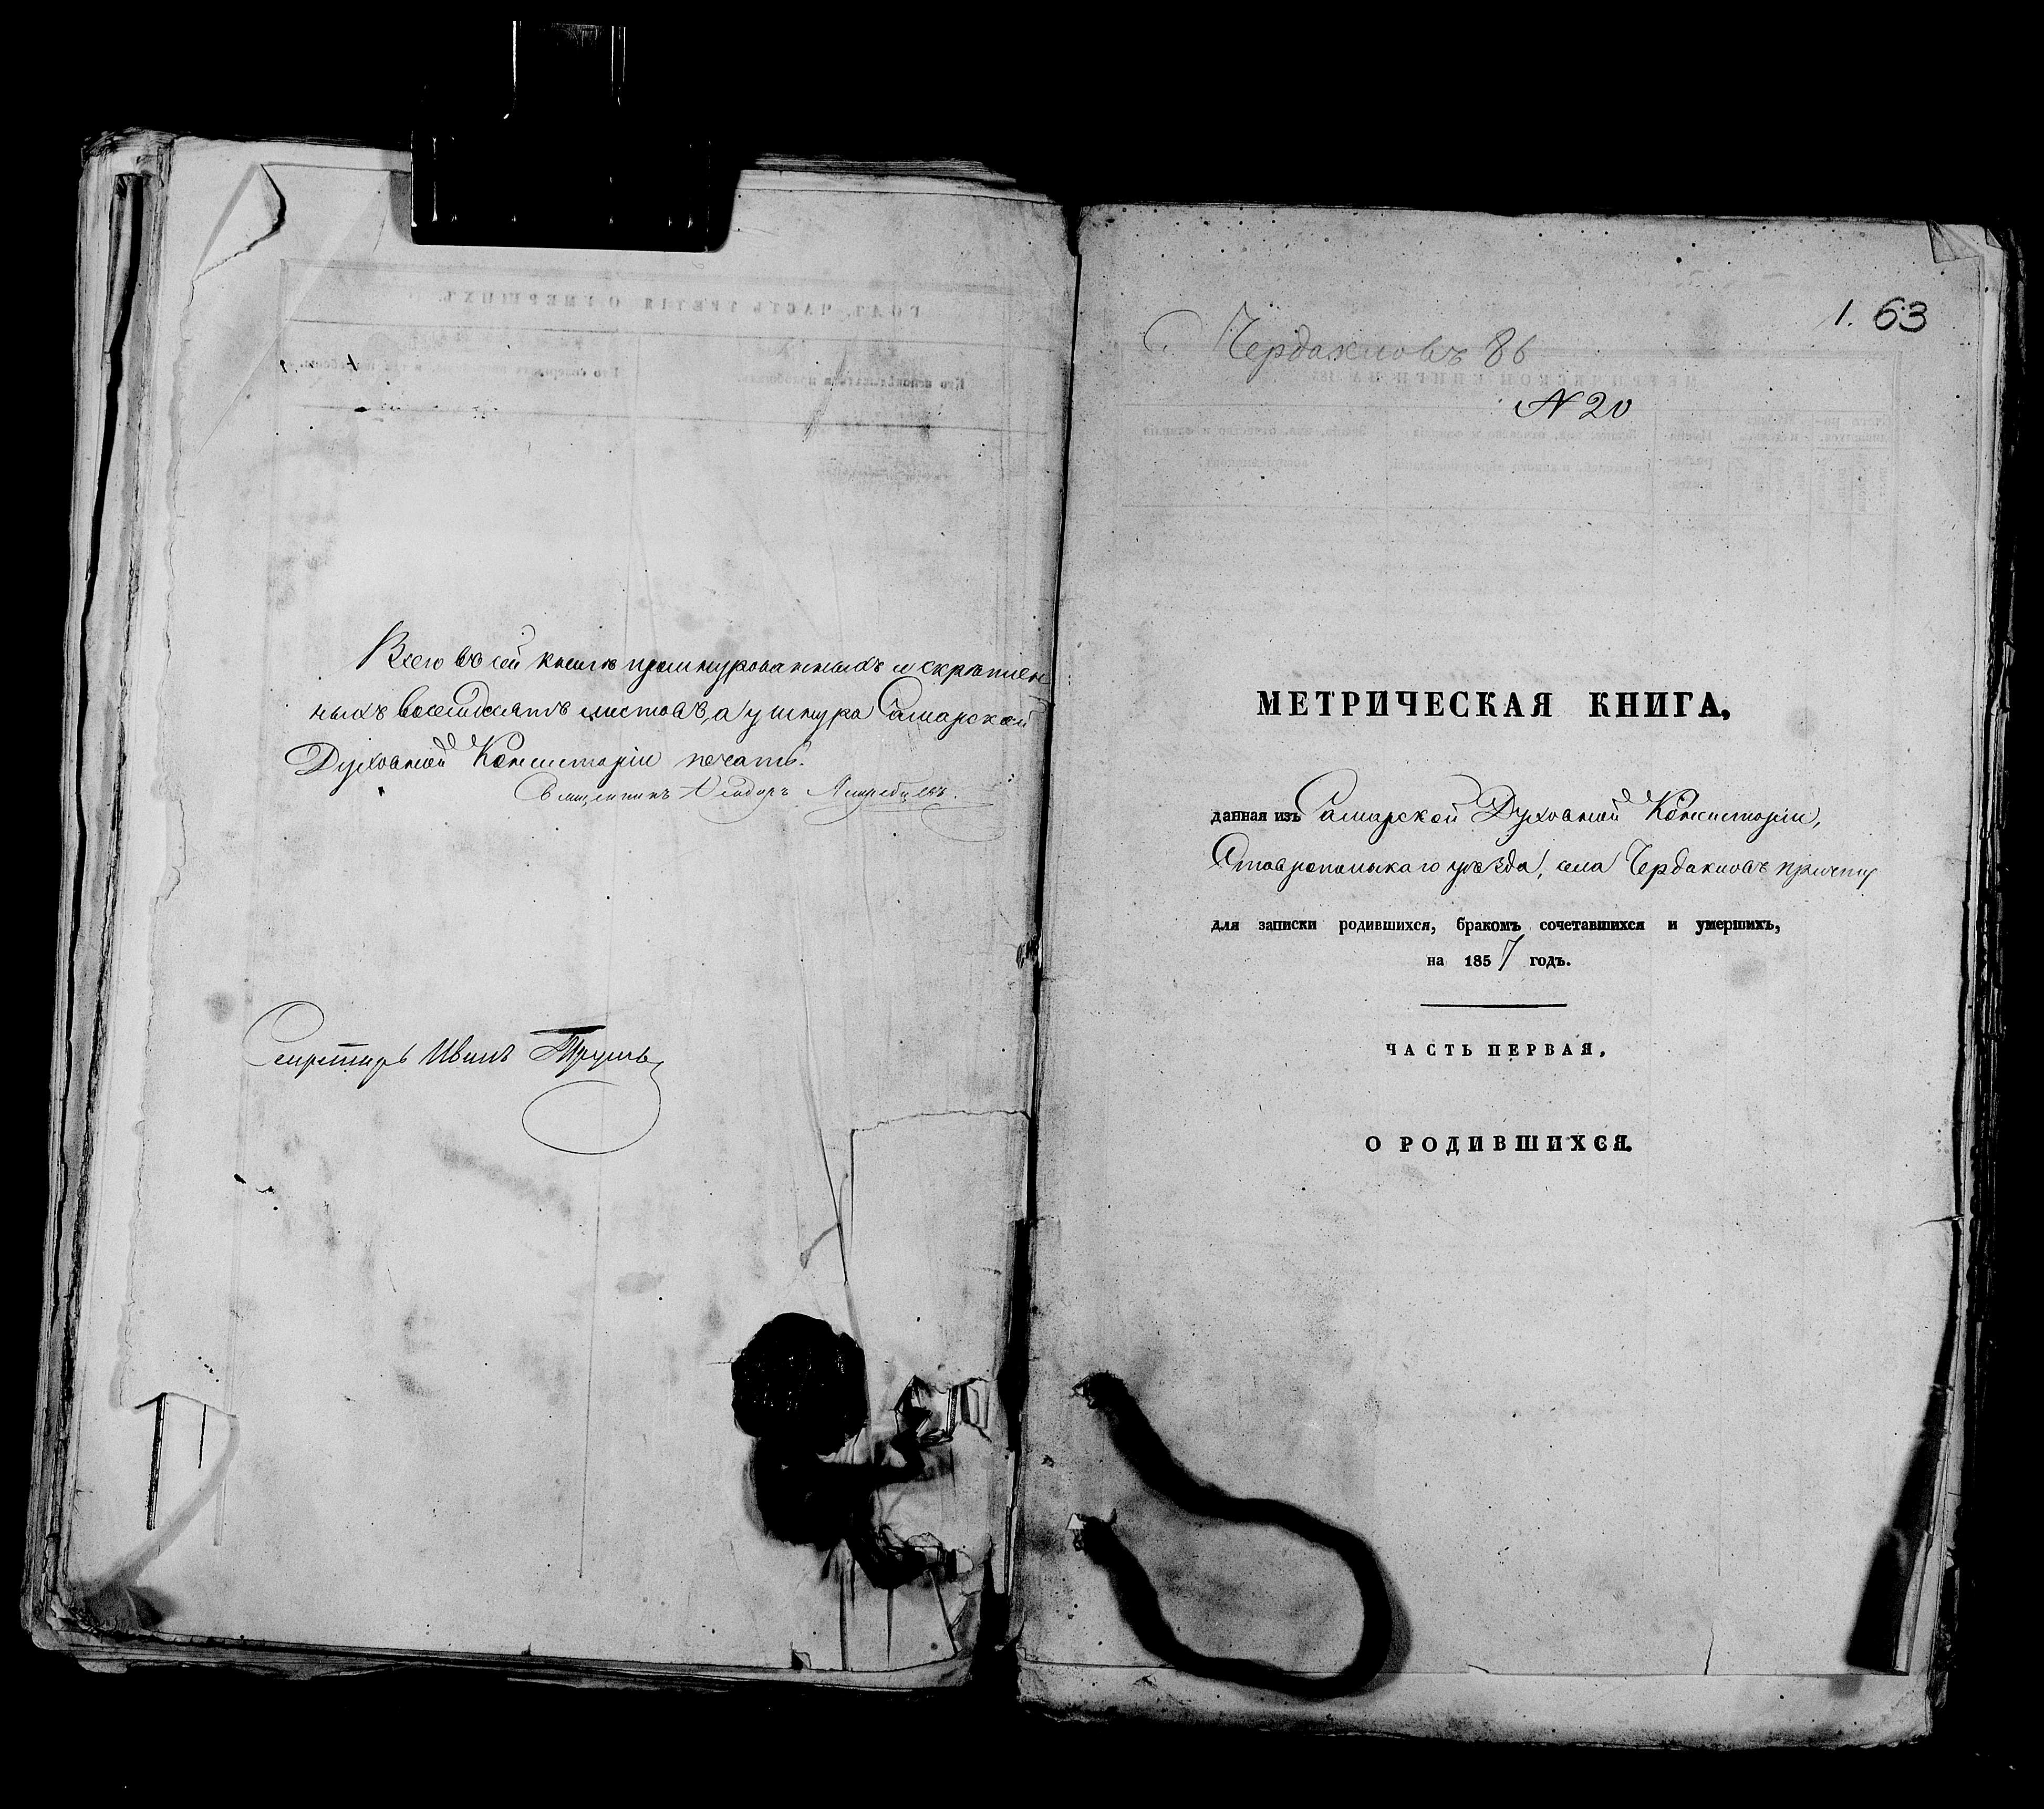 Всего въ сей книгѣ прошнурованныхъ и скрѣплен
ныхъ восемдесятъ листовъ, а у шнура Самарской
Духовной Консисторіи печать.
Священникъ
Секретарь Иванъ
1. 63
С. Чердакловъ 86
N 20
МЕТРИЧЕСКАЯ КНИГА,
данная изъ Самарской Духовной Консисторіи,
Ставропольскаго уѣзда, села Чердакловъ причту
для записки родившихся, бракомъ сочетавшихся и умершихъ,
на 1857 годъ.
ЧАСТЬ ПЕРВАЯ,
О РОДИВШИХСЯ.